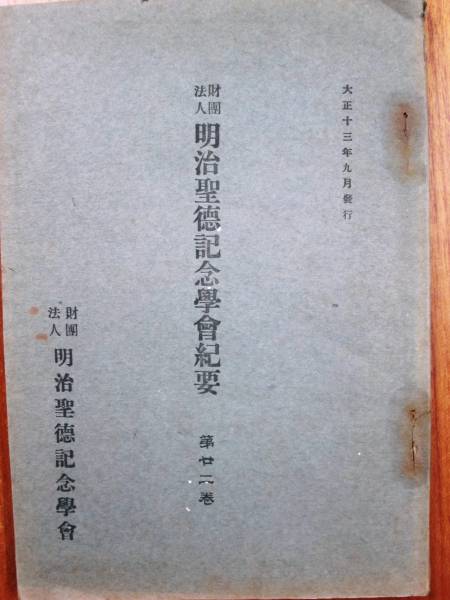 大正十三年九月發行
財團法人 明治聖德記念學會紀要 第廿二卷
財團法人 明治聖德記念學會